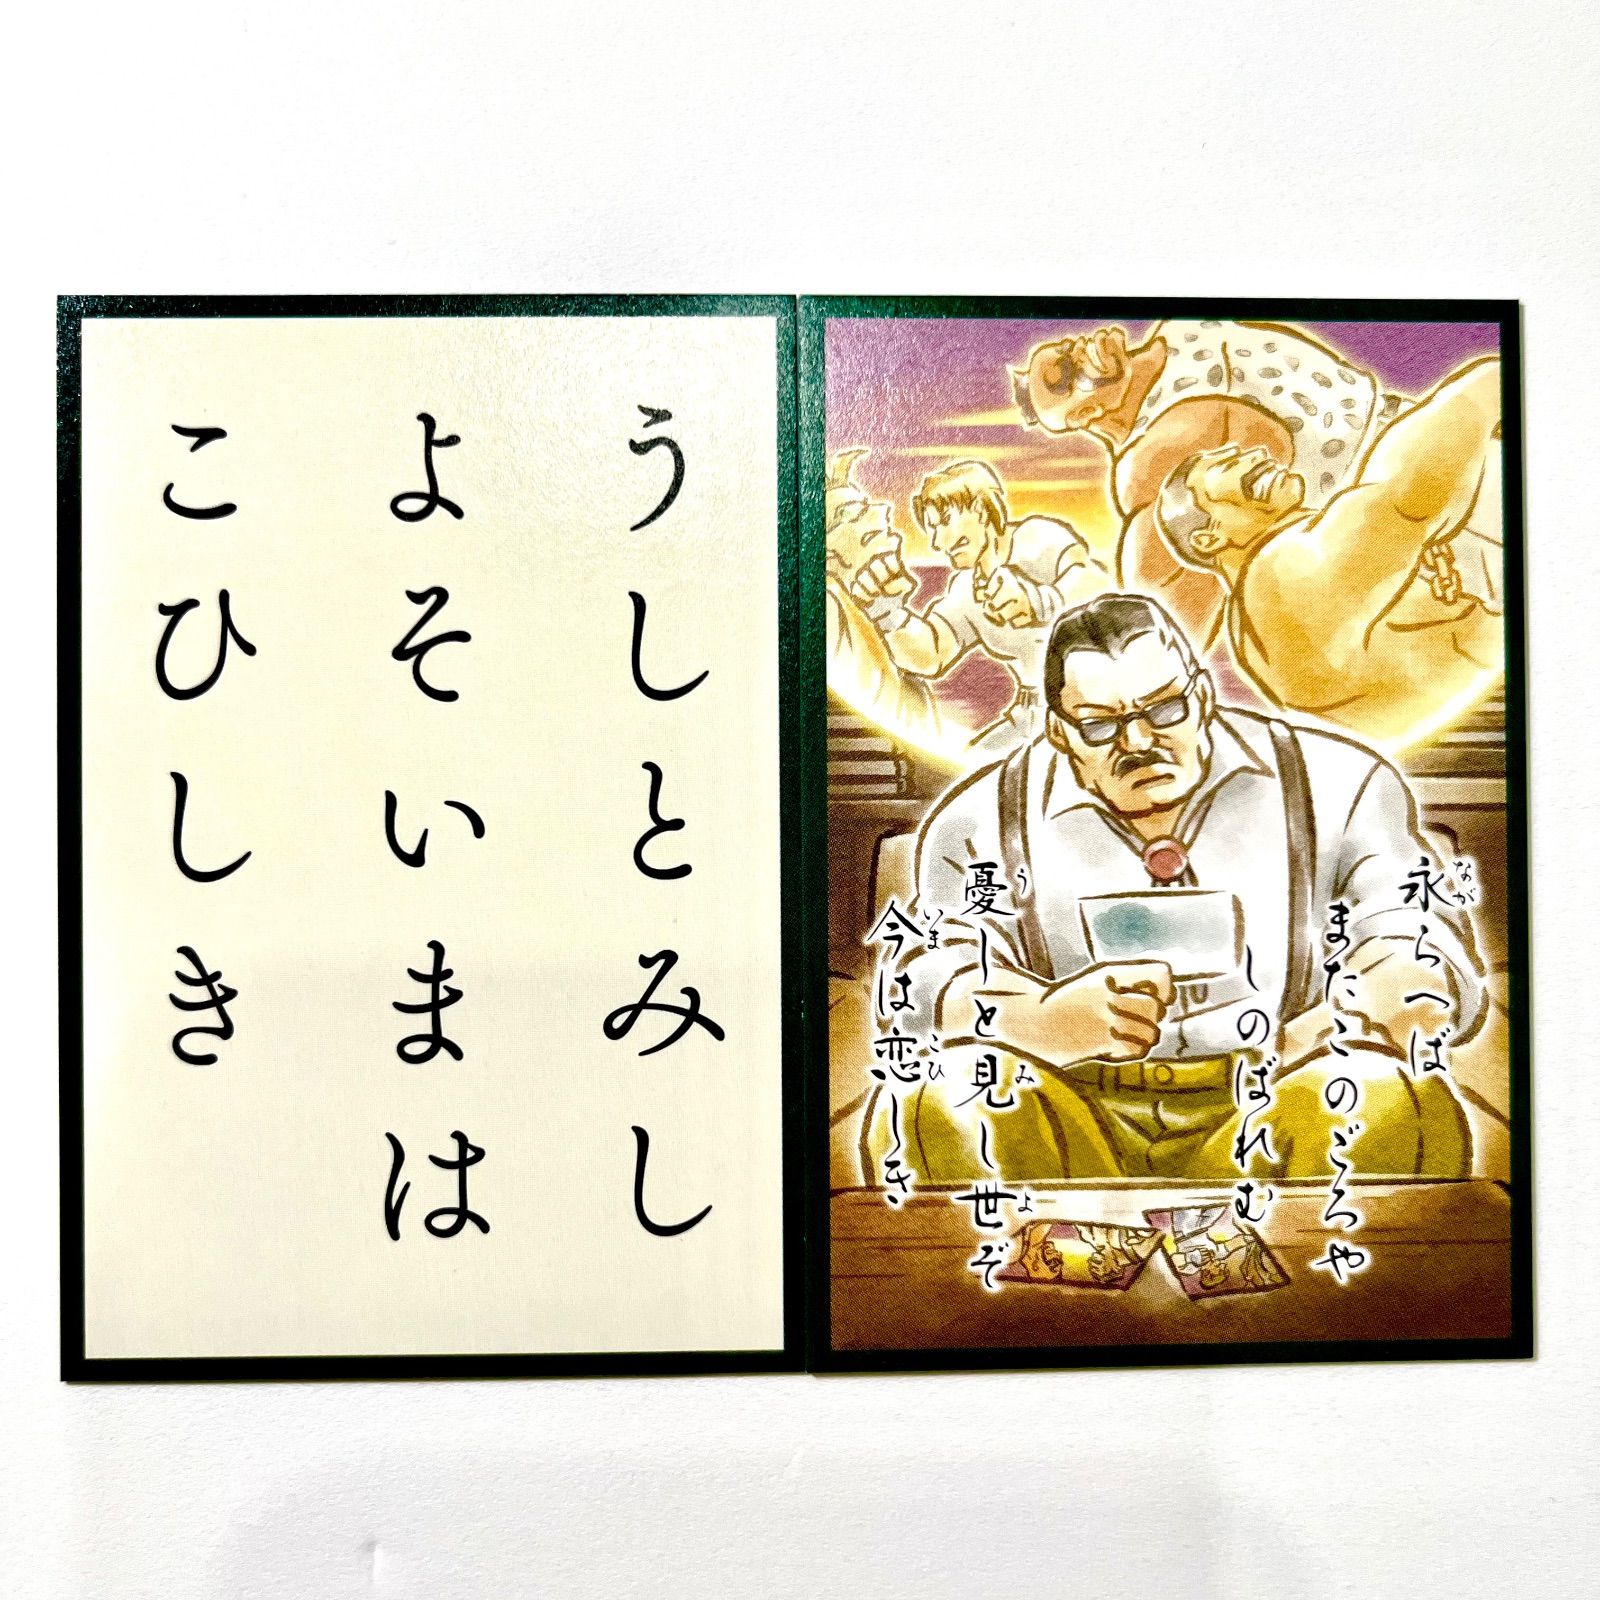 うしとみし
よそいまは
こひしき
永らへば
またこのごろや
しのばれむ
憂しと見し世ぞ
今は恋しき